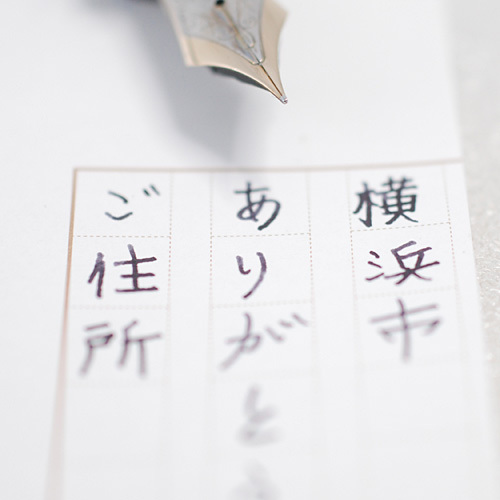 横浜市
ありがと
ご住所